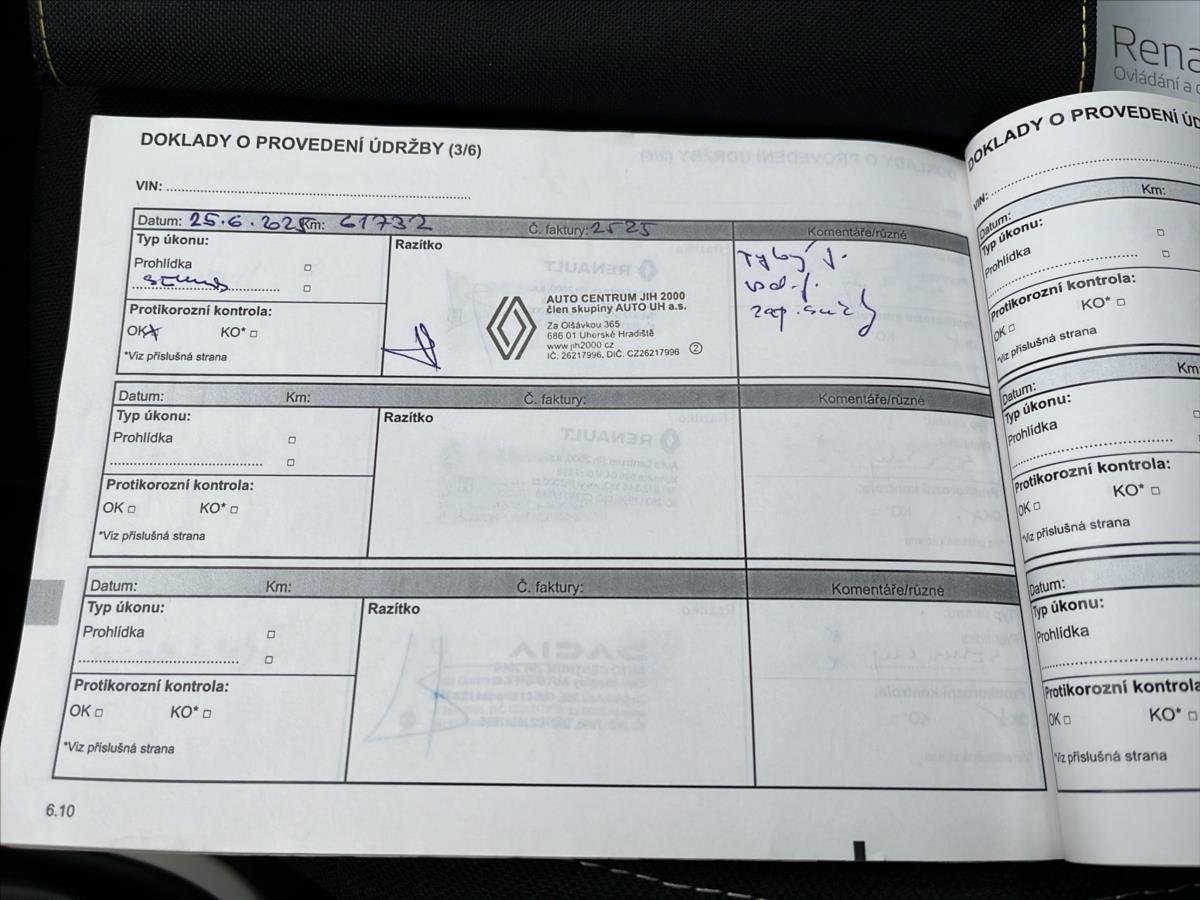 Rena
Ovládání a
DOKLADY O PROVEDENÍ ÚDRŽBY (3/6)
VIN:
Datum: 25.6.2025 Km: 61732 Č. faktury: 2525 Komentáře/různé
Typ úkonu:
Prohlídka
Protikorozní kontrola:
OK KO*
*Viz příslušná strana
Razítko
AUTO CENTRUM JIH 2000
člen skupiny AUTO UH a.s.
Za Olšávkou 365
686 01 Uherské Hradiště
www.jih2000.cz
IČ: 26217996, DIČ. CZ26217996 2
zap.
Datum: Km: Č. faktury: Komentáře/různé
Typ úkonu:
Prohlídka
Protikorozní kontrola:
OK KO*
*Viz příslušná strana
Razítko
Datum: Km: Č. faktury: Komentáře/různé
Typ úkonu:
Prohlídka
Protikorozní kontrola:
OK KO*
*Viz příslušná strana
Razítko
6.10
DOKLADY O PROVEDENÍ
VIN:
Datum: Km:
Typ úkonu:
Prohlídka
Protikorozní kontrola:
OK KO*
*Viz příslušná strana
Datum: Km
Typ úkonu:
Prohlídka
Protikorozní kontrola:
OK KO*
*Viz příslušná strana
Datum:
Typ úkonu:
Prohlídka
Protikorozní kontrola
OK KO*
*Viz příslušná strana